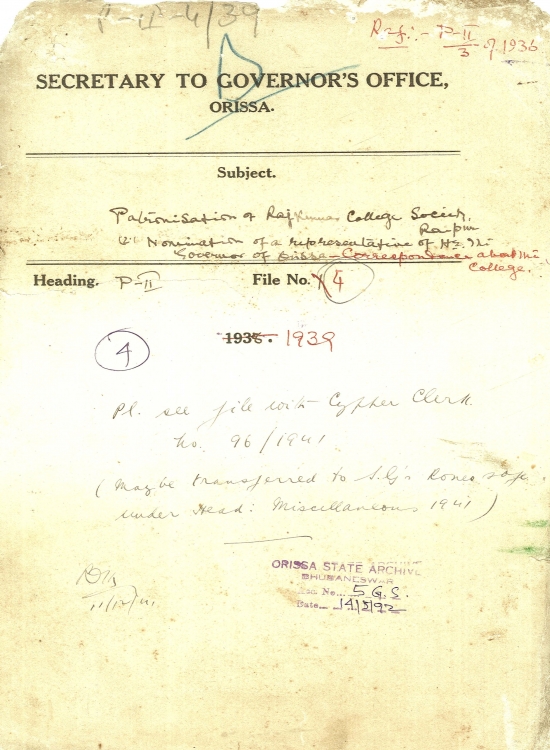 P-II-4/39
Ref:- P-II/3 of 1936
SECRETARY TO GOVERNOR'S OFFICE,
ORISSA.
Subject.
Patronisation of Rajkumar College Society,
Raipur
Nomination of a representative of H.E. The
Governor of Orissa - Correspondence about the
College.
Heading. P-II File No. 4
1936. 1939
4
Pl. see file with Cypher Clerk
No. 96/1941
(May be transferred to S.G's Roneo
under Head: Miscellaneous 1941)
11/12/41
ORISSA STATE ARCHIVE
BHUBANESWAR
Acc. No... 5 G.S.
Date... 14/5/92